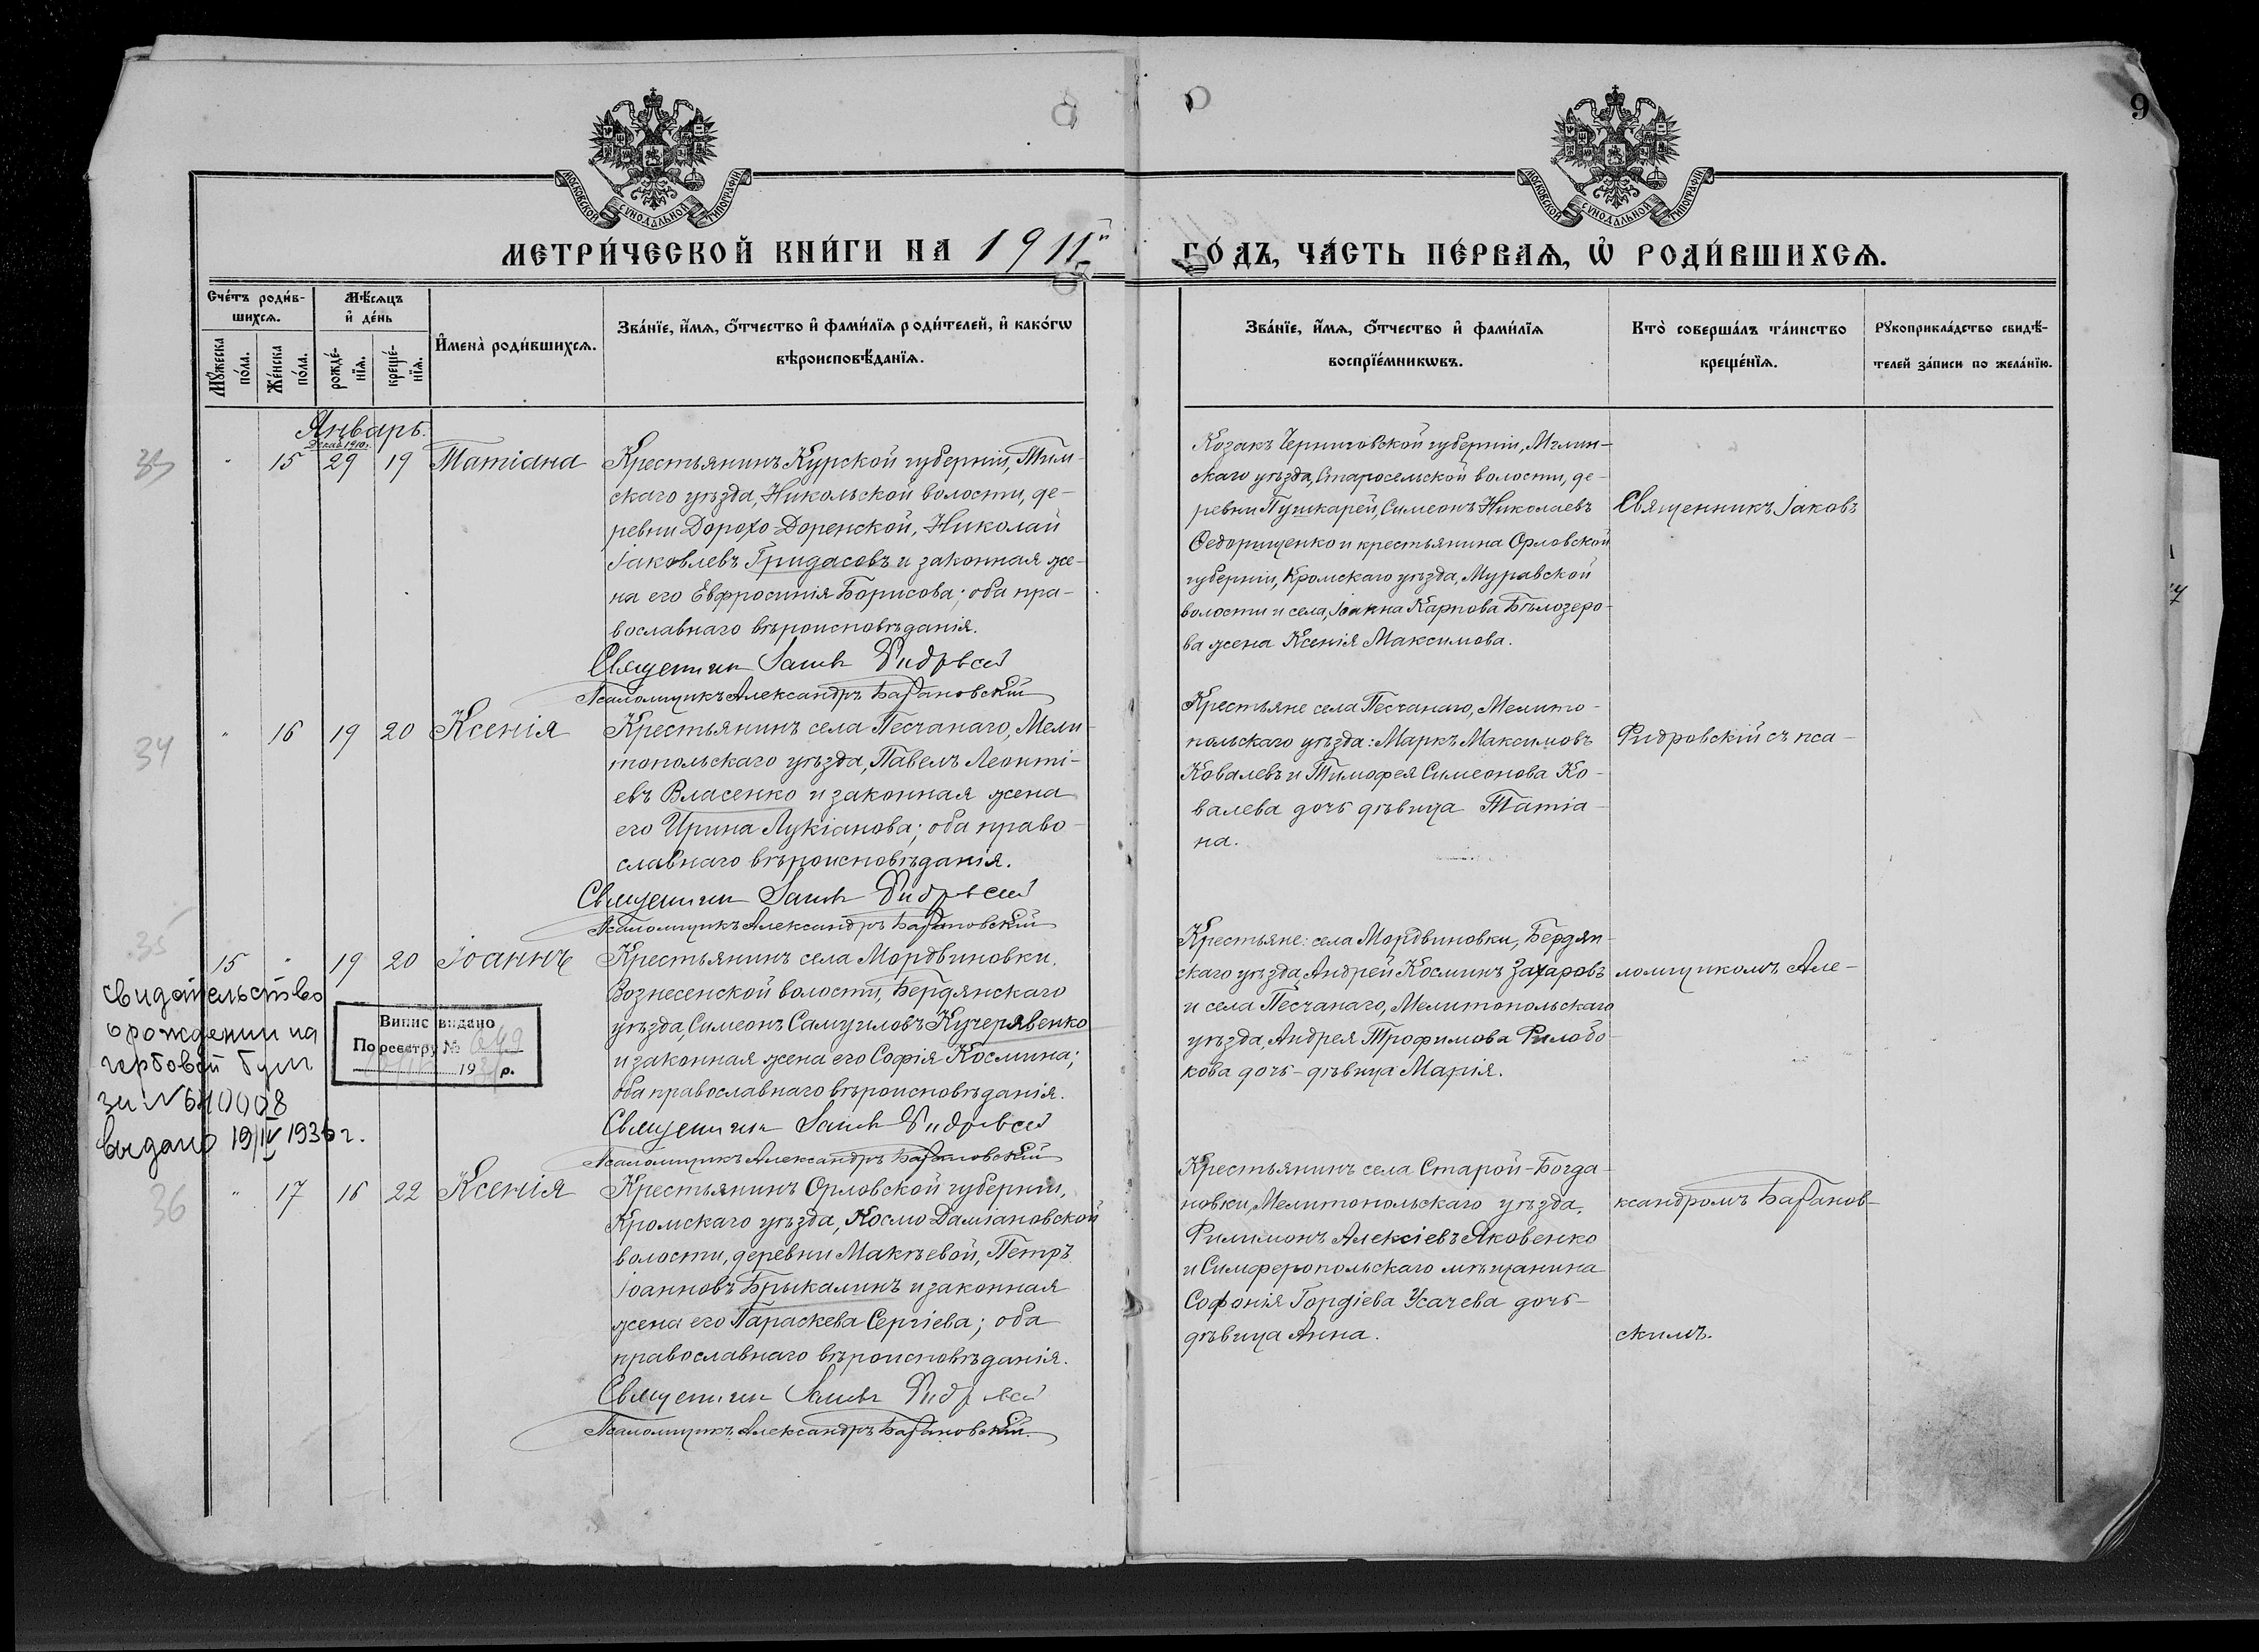 9
МОСКОВСКОЙ СѴНОДАЛЬНОЙ ТИПОГРАФІИ
МОСКОВСКОЙ СѴНОДАЛЬНОЙ ТИПОГРАФІИ
МЕТРИ́ЧЕСКОЙ КНИ́ГИ НА 1911й
ГО́ДЪ, ЧА́СТЬ ПЕ́РВАѦ, Ѡ҆ РОДИ́ВШИХСѦ.
Сче́тъ роди́в-
шихсѧ.
Мꙋ́жеска
по́ла.
Же́нска
по́ла.
Мѣ́сѧцъ
и҆ де́нь
рожде́-
нїѧ.
креще́-
нїѧ.
И҆мена̀ роди́вшихсѧ.
Зва́нїе, и҆́мѧ, ѻ҆́тчество и҆ фами́лїѧ роди́телей, и҆ како́гѡ
вѣроисповѣ́данїѧ.
Зва́нїе, и҆́мѧ, ѻ҆́тчество и҆ фами́лїѧ
воспрїе́мникѡвъ.
Кто̀ соверша́лъ та́инство
креще́нїѧ.
Рꙋкоприкла́дство свидѣ́-
телей за́писи по жела́нїю.
Январь.
Декаб. 1910 г.
33
"
15
29
19
Татіана
Крестьянинъ Курской губерніи, Тим-
скаго уѣзда, Никольской волости, де-
ревни Дорохо-Доренской, Николай
Іаковлевъ Гридасовъ и законная же-
на его Евфросинія Борисова; оба пра-
вославнаго вѣроисповѣданія.
Священникъ Іаковъ Фидровскій
Псаломщикъ Александръ Барановскій
Козакъ Черниговской губерніи, Мглин-
скаго уѣзда, Старосельской волости, де-
ревни Пушкарей, Симеонъ Николаевъ
Федорищенко и крестьянина Орловской
губерніи, Кромскаго уѣзда, Муравской
волости и села, Іоанна Карпова Бѣлозеро-
ва жена Ксенія Максимова.
Священникъ Іаковъ
34
"
16
19
20
Ксенія
Крестьянинъ села Песчанаго, Мели-
топольскаго уѣзда, Павелъ Леонті-
евъ Власенко и законная жена
его Ирина Лукіанова; оба право-
славнаго вѣроисповѣданія.
Священникъ Іаковъ Фидровскій
Псаломщикъ Александръ Барановскій
Крестьяне села Песчанаго, Мелито-
польскаго уѣзда: Маркъ Максимовъ
Ковалевъ и Тимофея Симеонова Ко-
валева дочь дѣвица Татіа-
на.
Фидровскій съ пса-
35
15
"
19
20
Іоаннъ
Крестьянинъ села Мордвиновки,
Вознесенской волости, Бердянскаго
уѣзда, Симеонъ Самуиловъ Кучерявенко
и законная жена его Софія Космина;
оба православнаго вѣроисповѣданія.
Священникъ Іаковъ Фидровскій
Псаломщикъ Александръ Барановскій
Крестьяне: села Мордвиновки, Бердян-
скаго уѣзда, Андрей Косминъ Захаровъ
и села Песчанаго, Мелитопольскаго
уѣзда, Андрея Трофимова Филобо-
кова дочь-дѣвица Марія.
ломщикомъ Але-
свидетельство
о рождении на
гербовой бум
за №
выдано 19/IV 193 г.
Випис видано
По реестру № 649
19 р.
36
"
17
16
22
Ксенія
Крестьянинъ Орловской губерніи,
Кромскаго уѣзда, Космо Даміановской
волости, деревни Макѣевой, Петръ
Іоанновъ Брыкалинъ и законная
жена его Параскева Сергіева; оба
православнаго вѣроисповѣданія.
Священникъ Іаковъ Фидровскій
Псаломщикъ Александръ Барановскій.
Крестьянинъ села Старой-Богда-
новки, Мелитопольскаго уѣзда,
Филимонъ Алексіевъ Яковенко
и Симферопольскаго мѣщанина
Софонія Гордіева Усачева дочь-
дѣвица Анна.
ксандромъ Баранов-
скимъ.